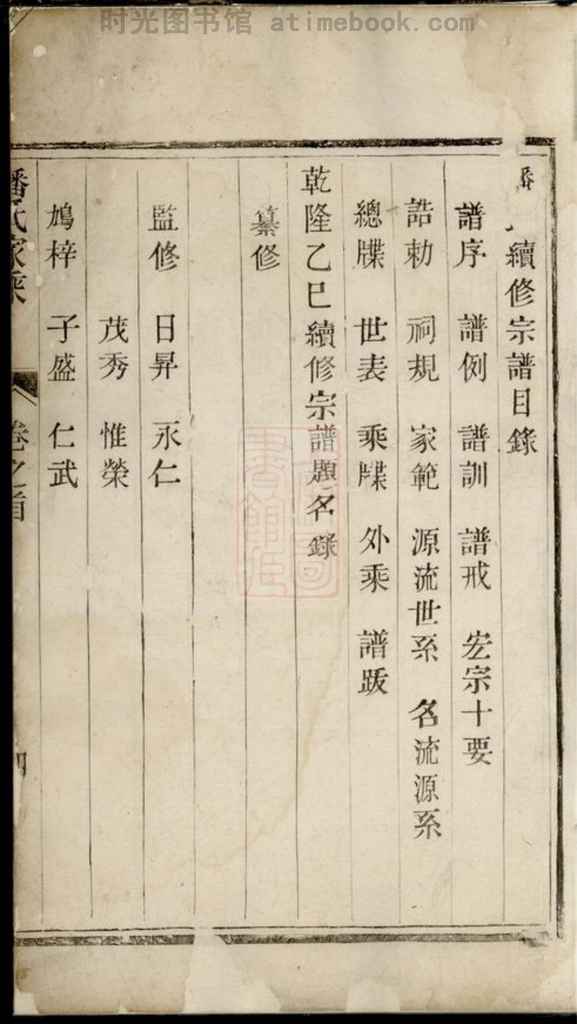 时光图书馆 atimebook.com
續修宗譜目錄
譜序 譜例 譜訓 譜戒 宏宗十要
誥勅 祠規 家範 源流世系 名流源系
總牒 世表 乘牒 外乘 譜跋
乾隆乙巳續修宗譜題名錄
纂修
監修 日昇 永仁
茂秀 惟榮
鳩梓 子盛 仁武
潘氏家乘 卷之首 四